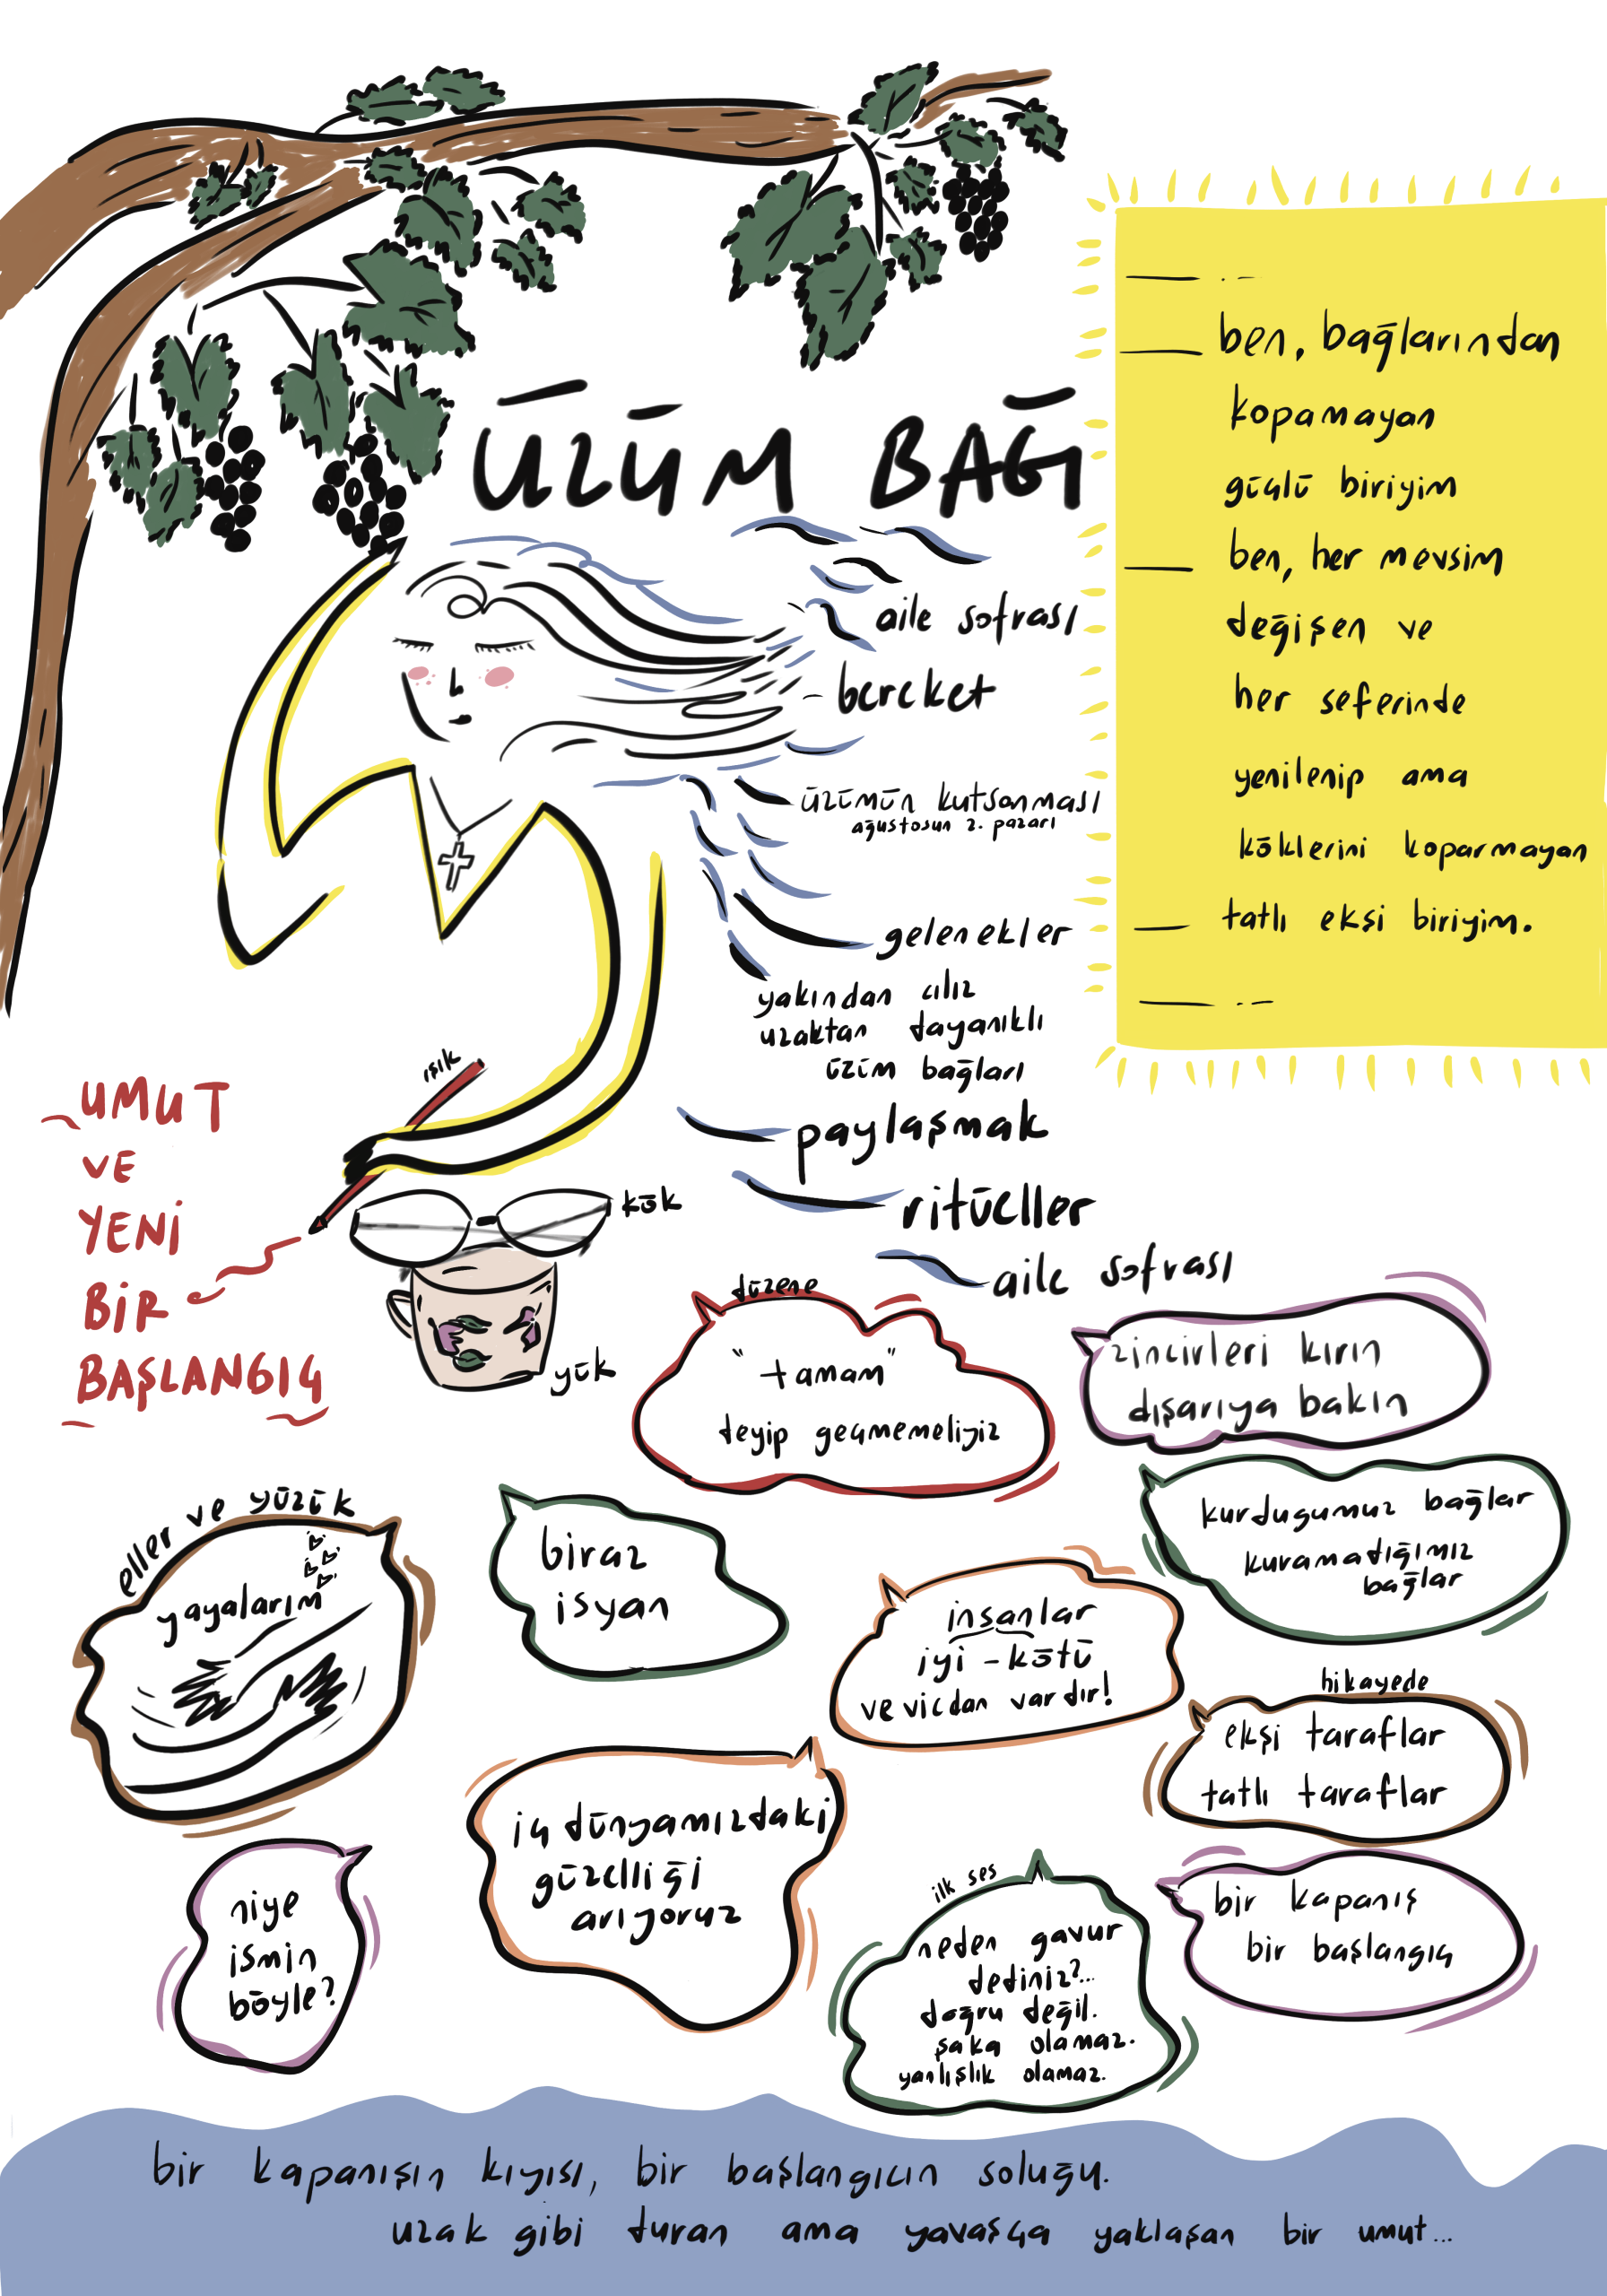 ÜZÜM BAĞI
ben, bağlarından
kopamayan
güçlü biriyim
ben, her mevsim
değişen ve
her seferinde
yenilenip ama
köklerini koparmayan
tatlı ekşi biriyim.
aile sofrası
bereket
üzümün kutsanması
ağustosun 2. pazarı
gelenekler
yakından cılız
uzaktan dayanıklı
üzüm bağları
paylaşmak
ritüeller
aile sofrası
ışık
kök
yük
UMUT
VE
YENİ
BİR
BAŞLANGIÇ
düzene
"tamam"
deyip geçmemeliyiz
zincirleri kırın
dışarıya bakın
eller ve yüzük
yayalarım
biraz
isyan
kurdugumuz bağlar
kuramadığımız
bağlar
insanlar
iyi - kötü
ve vicdan vardır!
hikayede
ekşi taraflar
tatlı taraflar
iç dünyamızdaki
güzelliği
arıyoruz
niye
ismin
böyle?
ilk ses
neden gavur
dediniz?...
doğru değil.
şaka olamaz.
yanlışlık olamaz.
bir kapanış
bir başlangıç
bir kapanışın kıyısı, bir başlangıcın soluğu.
uzak gibi duran ama yavaşça yaklaşan bir umut...